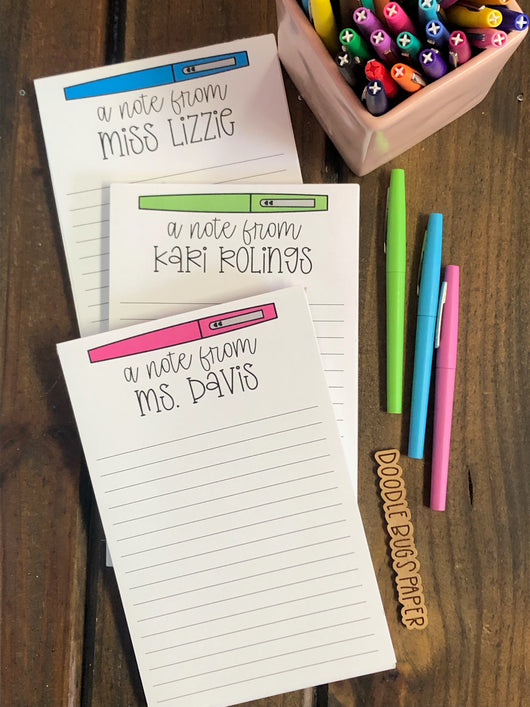 a note from
Miss Lizzie
a note from
Kari Rolings
a note from
Ms. Davis
DOODLE BUGS PAPER